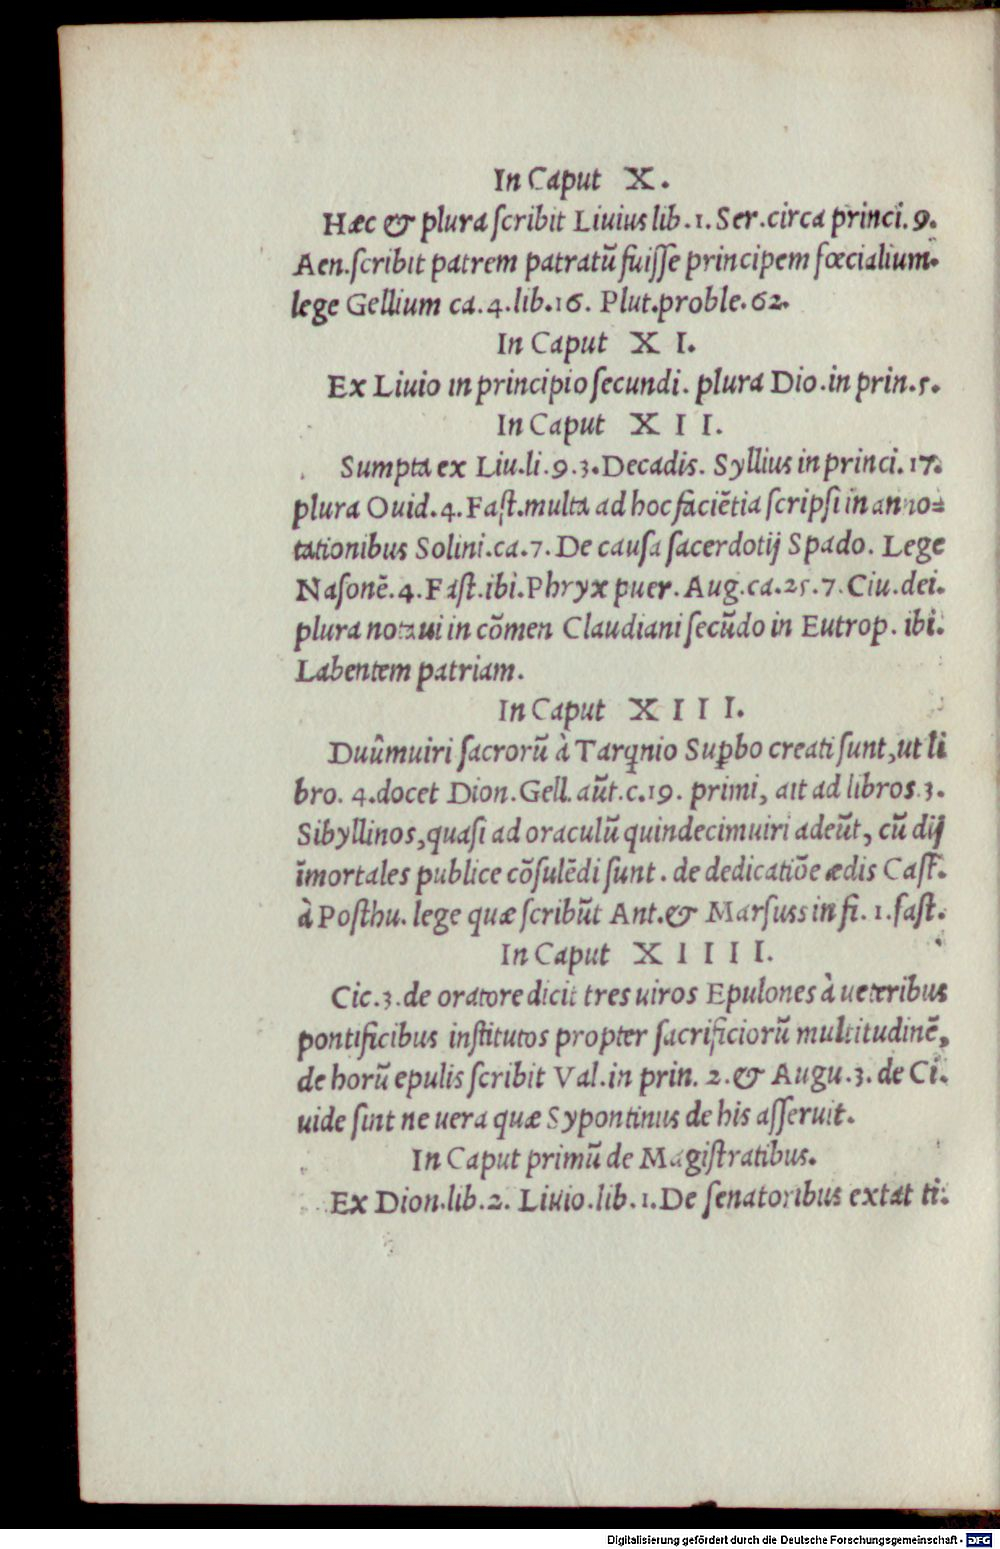 In Caput X.
Hæc & plura scribit Liuius lib.1. Ser.circa princi.9.
Aen.scribit patrem patratũ fuisse principem fœcialium.
lege Gellium ca.4.lib.16. Plut.proble.62.
In Caput X I.
Ex Liuio in principio secundi. plura Dio.in prin.5.
In Caput X I I.
Sumpta ex Liu.li.9.3.Decadis. Syllius in princi.17.
plura Ouid.4.Fast.multa ad hoc faciẽtia scripsi in anno=
tationibus Solini.ca.7.De causa sacerdotij Spado. Lege
Nasonẽ.4.Fast.ibi.Phryx puer. Aug.ca.25.7.Ciu.dei.
plura notaui in cõmen Claudiani secũdo in Eutrop. ibi.
Labentem patriam.
In Caput X I I I.
Duũmuiri sacrorũ à Tarqnio Suꝑbo creati sunt,ut li
bro. 4.docet Dion.Gell.aũt.c.19. primi, ait ad libros 3.
Sibyllinos,quasi ad oraculũ quindecimuiri adeũt, cũ dij
ĩmortales publice cõsulẽdi sunt. de dedicatiõe ædis Cast.
à Posthu. lege quæ scribũt Ant.& Marsuss in fi. 1.fast.
In Caput X I I I I.
Cic.3.de oratore dicit tres uiros Epulones à ueteribus
pontificibus institutos propter sacrificiorũ multitudinẽ,
de horũ epulis scribit Val.in prin. 2.& Augu.3.de Ci.
uide sint ne uera quæ Sypontinus de his asseruit.
In Caput primũ de Magistratibus.
Ex Dion.lib.2. Liuio.lib.1.De senatoribus extat ti.
Digitalisierung gefördert durch die Deutsche Forschungsgemeinschaft - DFG